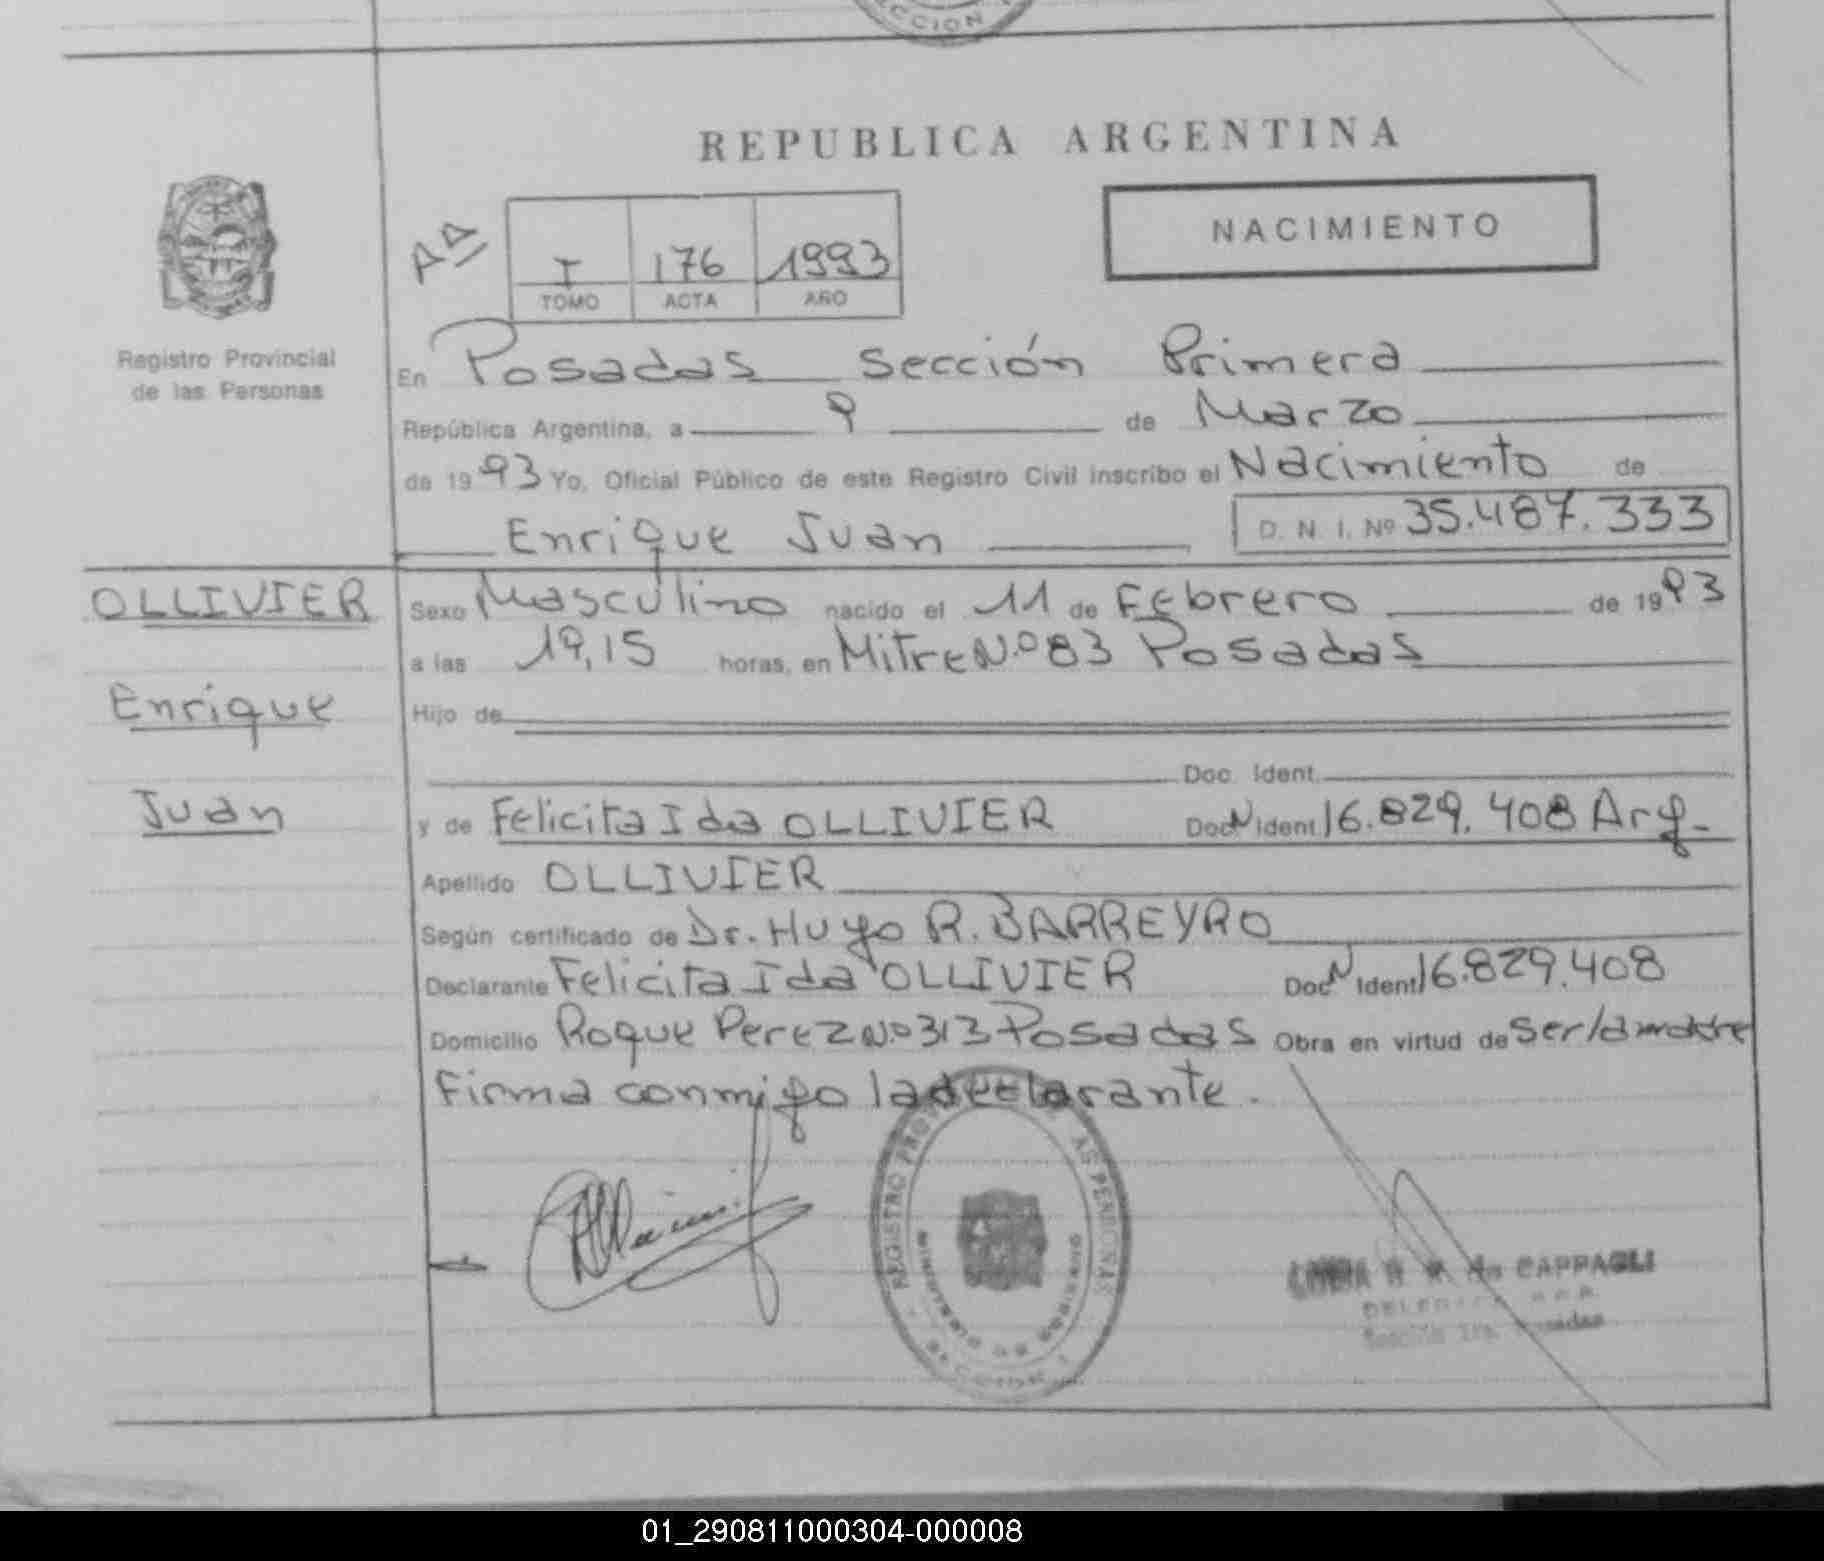 CCION
REPUBLICA ARGENTINA
NACIMIENTO
AA
I 176 1993
TOMO ACTA AÑO
Registro Provincial
de las Personas
En Posadas Sección Primera
República Argentina, a 9 de Marzo
de 1993 Yo, Oficial Público de este Registro Civil inscribo el Nacimiento de
Enrique Juan D. N. I. Nº 35.487.333
OLLIVIER
Enrique
Juan
Sexo Masculino nacido el 11 de Febrero de 1993
a las 19,15 horas, en Mitre N.º 83 Posadas
Hijo de
Doc. Ident.
y de Felicita Ida OLLIVIER Doc N Ident 16.829.408 Arg.
Apellido OLLIVIER
Según certificado de Dr. Hugo R. BARREYRO
Declarante Felicita Ida OLLIVIER Doc N Ident 16.829.408
Domicilio Roque Perez N.º 313 Posadas Obra en virtud de ser la madre
Firma conmigo la declarante.
REGISTRO PROV AS PERSONAS
de CAPPAGLI
01_290811000304-000008